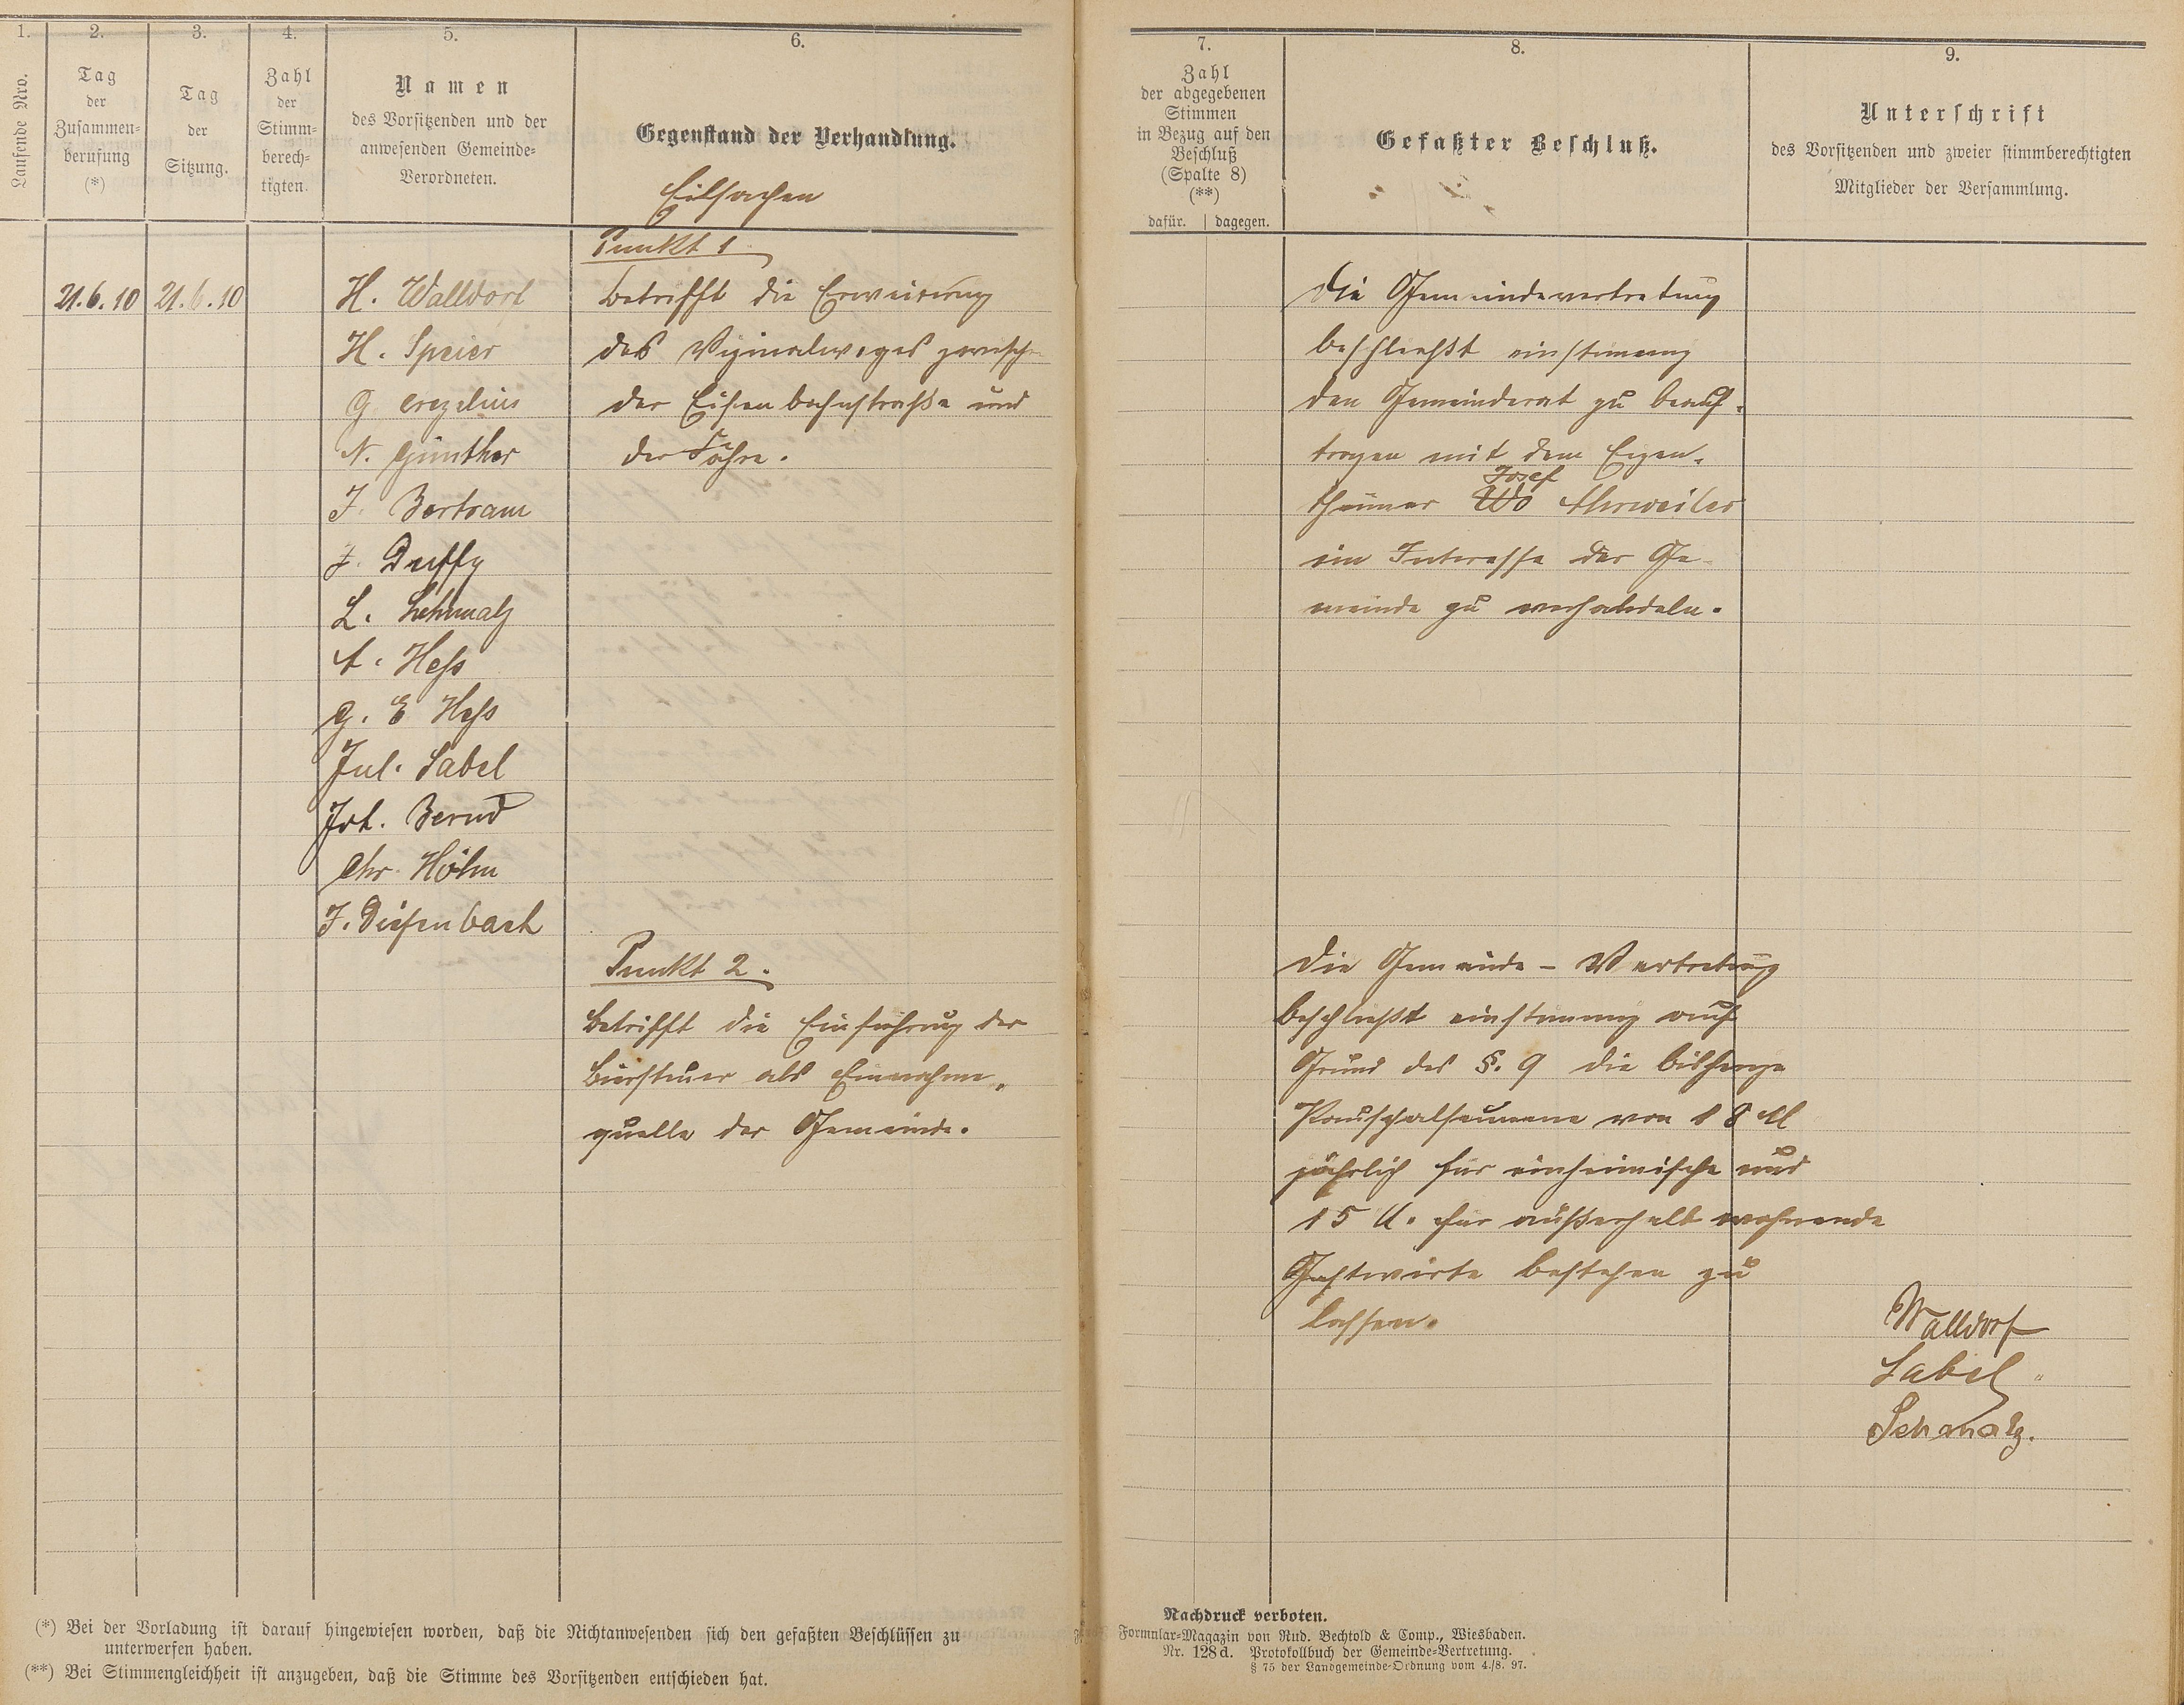 1.
Laufende Nro.
2.
Tag
der
Zusammen-
berufung
(*)
3.
Tag
der
Sitzung.
4.
Zahl
der
Stimm-
berech-
tigten.
5.
Namen
des Vorsitzenden und der
anwesenden Gemeinde-
Verordneten.
6.
Gegenstand der Verhandlung.
Eilsachen
7.
Zahl
der abgegebenen
Stimmen
in Bezug auf den
Beschluß
(Spalte 8)
(**)
dafür. | dagegen.
8.
Gefaßter Beschluß.
9.
Unterschrift
des Vorsitzenden und zweier stimmberechtigten
Mitglieder der Versammlung.
21.6.10
21.6.10
H. Walldorf
H. Speier
N. Günther
J. Bertram
J. Duffy
L. Schmalz
A. Hess
G. E Hess
Jul. Sabel
Joh. Bernd
Chr. Höhn
J. Diefenbach
Punkt 1
betrifft die Erweiterung
des Vizinalweges zwischen
der Eisenbahnstraße und
der Fähre.
Die Gemeindevertretung
beschließt einstimmig
den Gemeinderat zu beauf-
tragen mit dem Eigen-
Josef
thümer Wo Ahrweiler
im Interesse der Ge-
meinde zu verhandeln.
Punkt 2.
betrifft die Einführung der
Biersteuer als Einnahme-
quelle der Gemeinde.
Die Gemeinde-Vertretung
beschließt einstimmig auf
Grund des §. 9 die bisherige
Pauschalsumme von 18 M
jährlich für einheimische und
15 M. für außerhalb wohnende
Gastwirte bestehen zu
lassen.
Walldorf
Sabel
Schmalz.
(*) Bei der Vorladung ist darauf hingewiesen worden, daß die Nichtanwesenden sich den gefaßten Beschlüssen zu
unterwerfen haben.
(**) Bei Stimmengleichheit ist anzugeben, daß die Stimme des Vorsitzenden entschieden hat.
Nachdruck verboten.
Formular-Magazin von Rud. Bechtold & Comp., Wiesbaden.
Nr. 128d. Protokollbuch der Gemeinde-Vertretung.
§ 75 der Landgemeinde-Ordnung vom 4./8. 97.